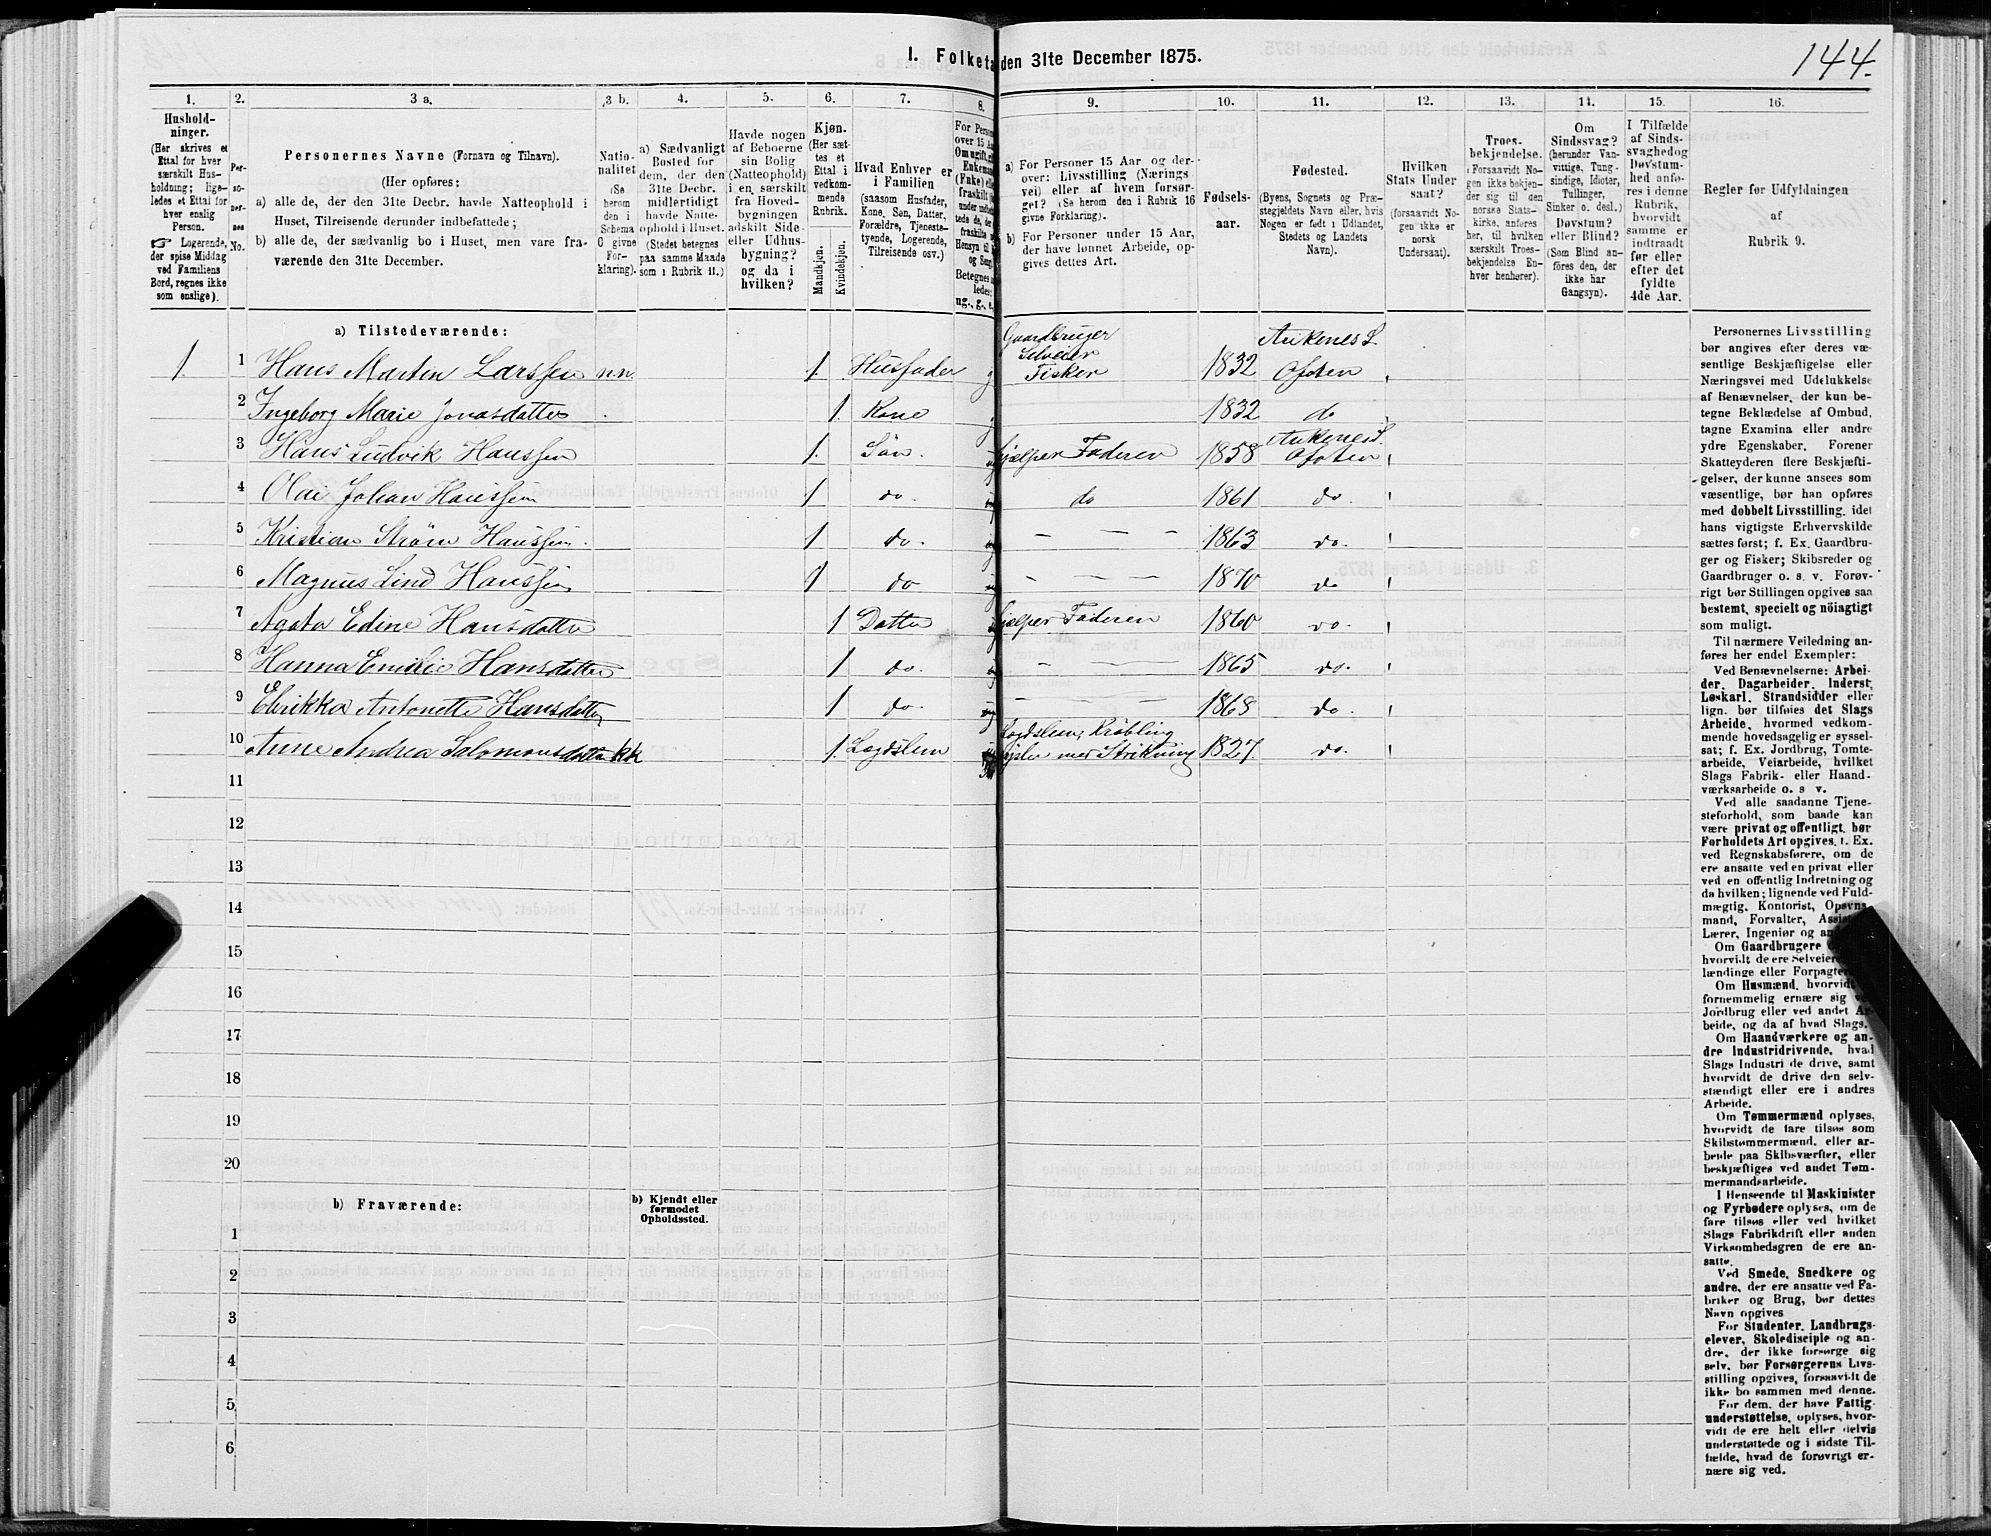 I. Folketæ den 31te December 1875.
144.
1. 2. 3 a. 3 b. 4. 5. 6. 7. 8. 9. 10. 11. 12. 13. 14. 15. 16.
Hushold-
ninger.
(Her skrives et
Ettal for hver
særskilt Hus-
holdning; lige-
ledes et Ettal for
hver enslig
Person.
☞ Logerende,
der spise Middag
ved Familiens
Bord, regnes ikke
som enslige).
Per-
so-
ner-
nes
No.
Personernes Navne (Fornavn og Tilnavn).
(Her opføres:
a) alle de, der den 31te Decbr. havde Natteophold i
Huset, Tilreisende derunder indbefattede;
b) alle de, der sædvanlig bo i Huset, men vare fra-
værende den 31te December.
Natio-
nalitet
(Se
herom
den i
Schema
C givne
For-
klaring).
a) Sædvanligt
Bosted for
dem, der den
31te Decbr.
midlertidigt
havde Natte-
ophold i Huset.
(Stedet betegnes
paa samme Maade
som i Rubrik 11.)
Havde nogen
af Beboerne
sin Bolig
(Natteophold)
i en særskilt
fra Hoved-
bygningen
adskilt Side-
eller Udhus-
bygning?
og da i
hvilken?
Kjøn.
(Her sæt-
tes et
Ettal i
vedkom-
mende
Rubrik.
Mandkjøn.
Kvindekjøn.
Hvad Enhver er
i Familien
(saasom Husfader,
Kone, Søn, Datter,
Forældre, Tjeneste-
tyende, Logerende,
Tilreisende osv.)
For Person
over 15 Aar
Om ugift, gift
Enkemand
(Enke) elle
fraskilt
Hensyn til
og Seng.
Betegnes
ledes:
ug., g., e.
a) For Personer 15 Aar og der-
over: Livsstilling (Nærings
vei) eller af hvem forsør-
get? (Se herom den i Rubrik 16
givne Forklaring).
b) For Personer under 15 Aar,
der have lønnet Arbeide, op-
gives dettes Art.
Fødsels-
aar.
Fødested.
(Byens, Sognets og Præ-
stegjeldets Navn eller, hvis
Nogen er født i Udlandet,
Stedets og Landets
Navn).
Hvilken
Stats Under
saat?
(forsaavidt No-
gen ikke er
norsk
Undersaat).
Troes-
bekjendelse.
(Forsaavidt No-
gen ikke bekjen-
der sig til den
norske Stats-
kirke, anføres
her, til hvilken
særskilt Troes-
bekjendelse En-
hver henhører).
Om
Sindssvag?
(herunder Van-
vittige, Tung-
sindige, Idioter,
Tullinger,
Sinker o. desl.)
Døvstum?
eller Blind?
(Som Blind an-
føres den, der
ikke har
Gangsyn).
I Tilfælde
af Sinds-
svaghed og
Døvstum-
hed anfø-
res i denne
Rubrik,
hvorvidt
samme er
indtraadt
før eller
efter det
fyldte
4de Aar.
Regler for Udfyldningen
af
Rubrik 9.
a) Tilstedeværende:
1. 1 Hans Marten Larssen n.n. 1. Husfader g Gaardbruger Selveier Fisker 1832 Ankenes S. Ofoten
2 Ingeborg Marie Jonasdatter 1. Kone 1832 do
3 Hans Ludvik Hanssen 1. Søn. hjælper Faderen 1858 Ankenes S. Ofoten
4 Olai Johan Hanssen 1 do. do 1861 do.
5 Kristian Strøm Hanssen. 1 do. — — — 1863 do.
6 Magnus Lind Hanssen 1 do — — — 1870 do
7 Agata Edine Hansdatter 1 Datter hjælper Faderen 1860 do.
8 Hanna Emilie Hansdatter 1 do. — — — 1865 do.
9 Elirikka Antonette Hansdatter 1 do. — — — 1868 do.
10 Anne Andrea Salomonsdatter kk 1. Lægdslem Lægdslem, Krøbling sysler med Strikning 1827. do.
11
12
13
14
15
16
17
18
19
20
b) Fraværende:
b) Kjendt eller
formodet
Opholdssted.
1
2
3
4
5
6
Personernes Livsstilling
bør angives efter deres væ-
sentlige Beskjæftigelse eller
Næringsvei med Udelukkelse
af Benævnelser, der kun be-
tegne Beklædelse af Ombud,
tagne Examina eller andre
ydre Egenskaber. Forener
Skatteyderen flere Beskjæfti-
gelser, der kunne ansees som
væsentlige, bør han opføres
med dobbelt Livsstilling, idet
hans vigtigste Erhvervskilde
sættes først; f. Ex. Gaardbru-
ger og Fisker; Skibsreder og
Gaardbruger o. s. v. Forøv-
rigt bør Stillingen opgives saa
bestemt, specielt og nöiagtigt
som muligt.
Til nærmere Veiledning an-
føres her endel Exempler:
Ved Benævnelserne: Arbei-
der, Dagarbeider, Inderst,
Løskarl, Strandsidder eller
lign. bør tilføies det Slags
Arbeide, hvormed vedkom-
mende hovedsagelig er syssel-
sat; f. Ex. Jordbrug, Tomte-
arbeide, Veiarbeide, hvilket
Slags Fabrik- eller Haand-
værksarbeide o. s v.
Ved alle saadanne Tjene-
steforhold, som baade kan
være privat og offentligt, bør
Forholdets Art opgives, f. Ex.
ved Regnskabsførere, om de
ere ansatte ved en privat eller
ved en offentlig Indretning og
da hvilken; lignende ved Fuld-
mægtig, Kontorist, Opsyns-
mand, Forvalter, Assis
Lærer, Ingeniør og an
Om Gaardbrugere
hvorvidt de ere Selveiere
lændinge eller Forpagte
Om Husmænd, hvorvidt
fornemmelig ernære sig
Jordbrug eller ved andet Ar-
beide, og da af hvad Slags.
Om Haandværkere og an-
dre Industridrivende, hvad
Slags Industri de drive, samt
hvorvidt de drive den selv-
stændigt eller ere i andres
Arbeide.
Om Tømmermænd oplyses,
hvorvidt de fare tilsøs som
Skibstømmermænd, eller ar-
beide paa Skibsværfter, eller
beskjæftiges ved andet Tøm-
mermandsarbeide.
I Henseende til Maskinister
og Fyrbødere oplyses, om de
fare tilsøs eller ved hvilket
Slags Fabrikdrift eller anden
Virksomhedsgren de ere an-
satte.
Ved Smede, Snedkere og
andre, der ere ansatte ved Fa-
briker og Brug, bør dettes
Navn opgives
For Studenter, Landbrugs-
elever, Skoledisciple og an-
dre, der ikke forsørge sig
selv, bør Forsørgerens Livs-
stilling opgives, forsaavidt de
ikke bo sammen med denne.
For dem, der have Fattig-
understøttelse, oplyses, hvor-
vidt de ere helt eller delvis
understøttede og i sidste Til-
fælde, hvad de forøvrigt er-
nære sig ved.